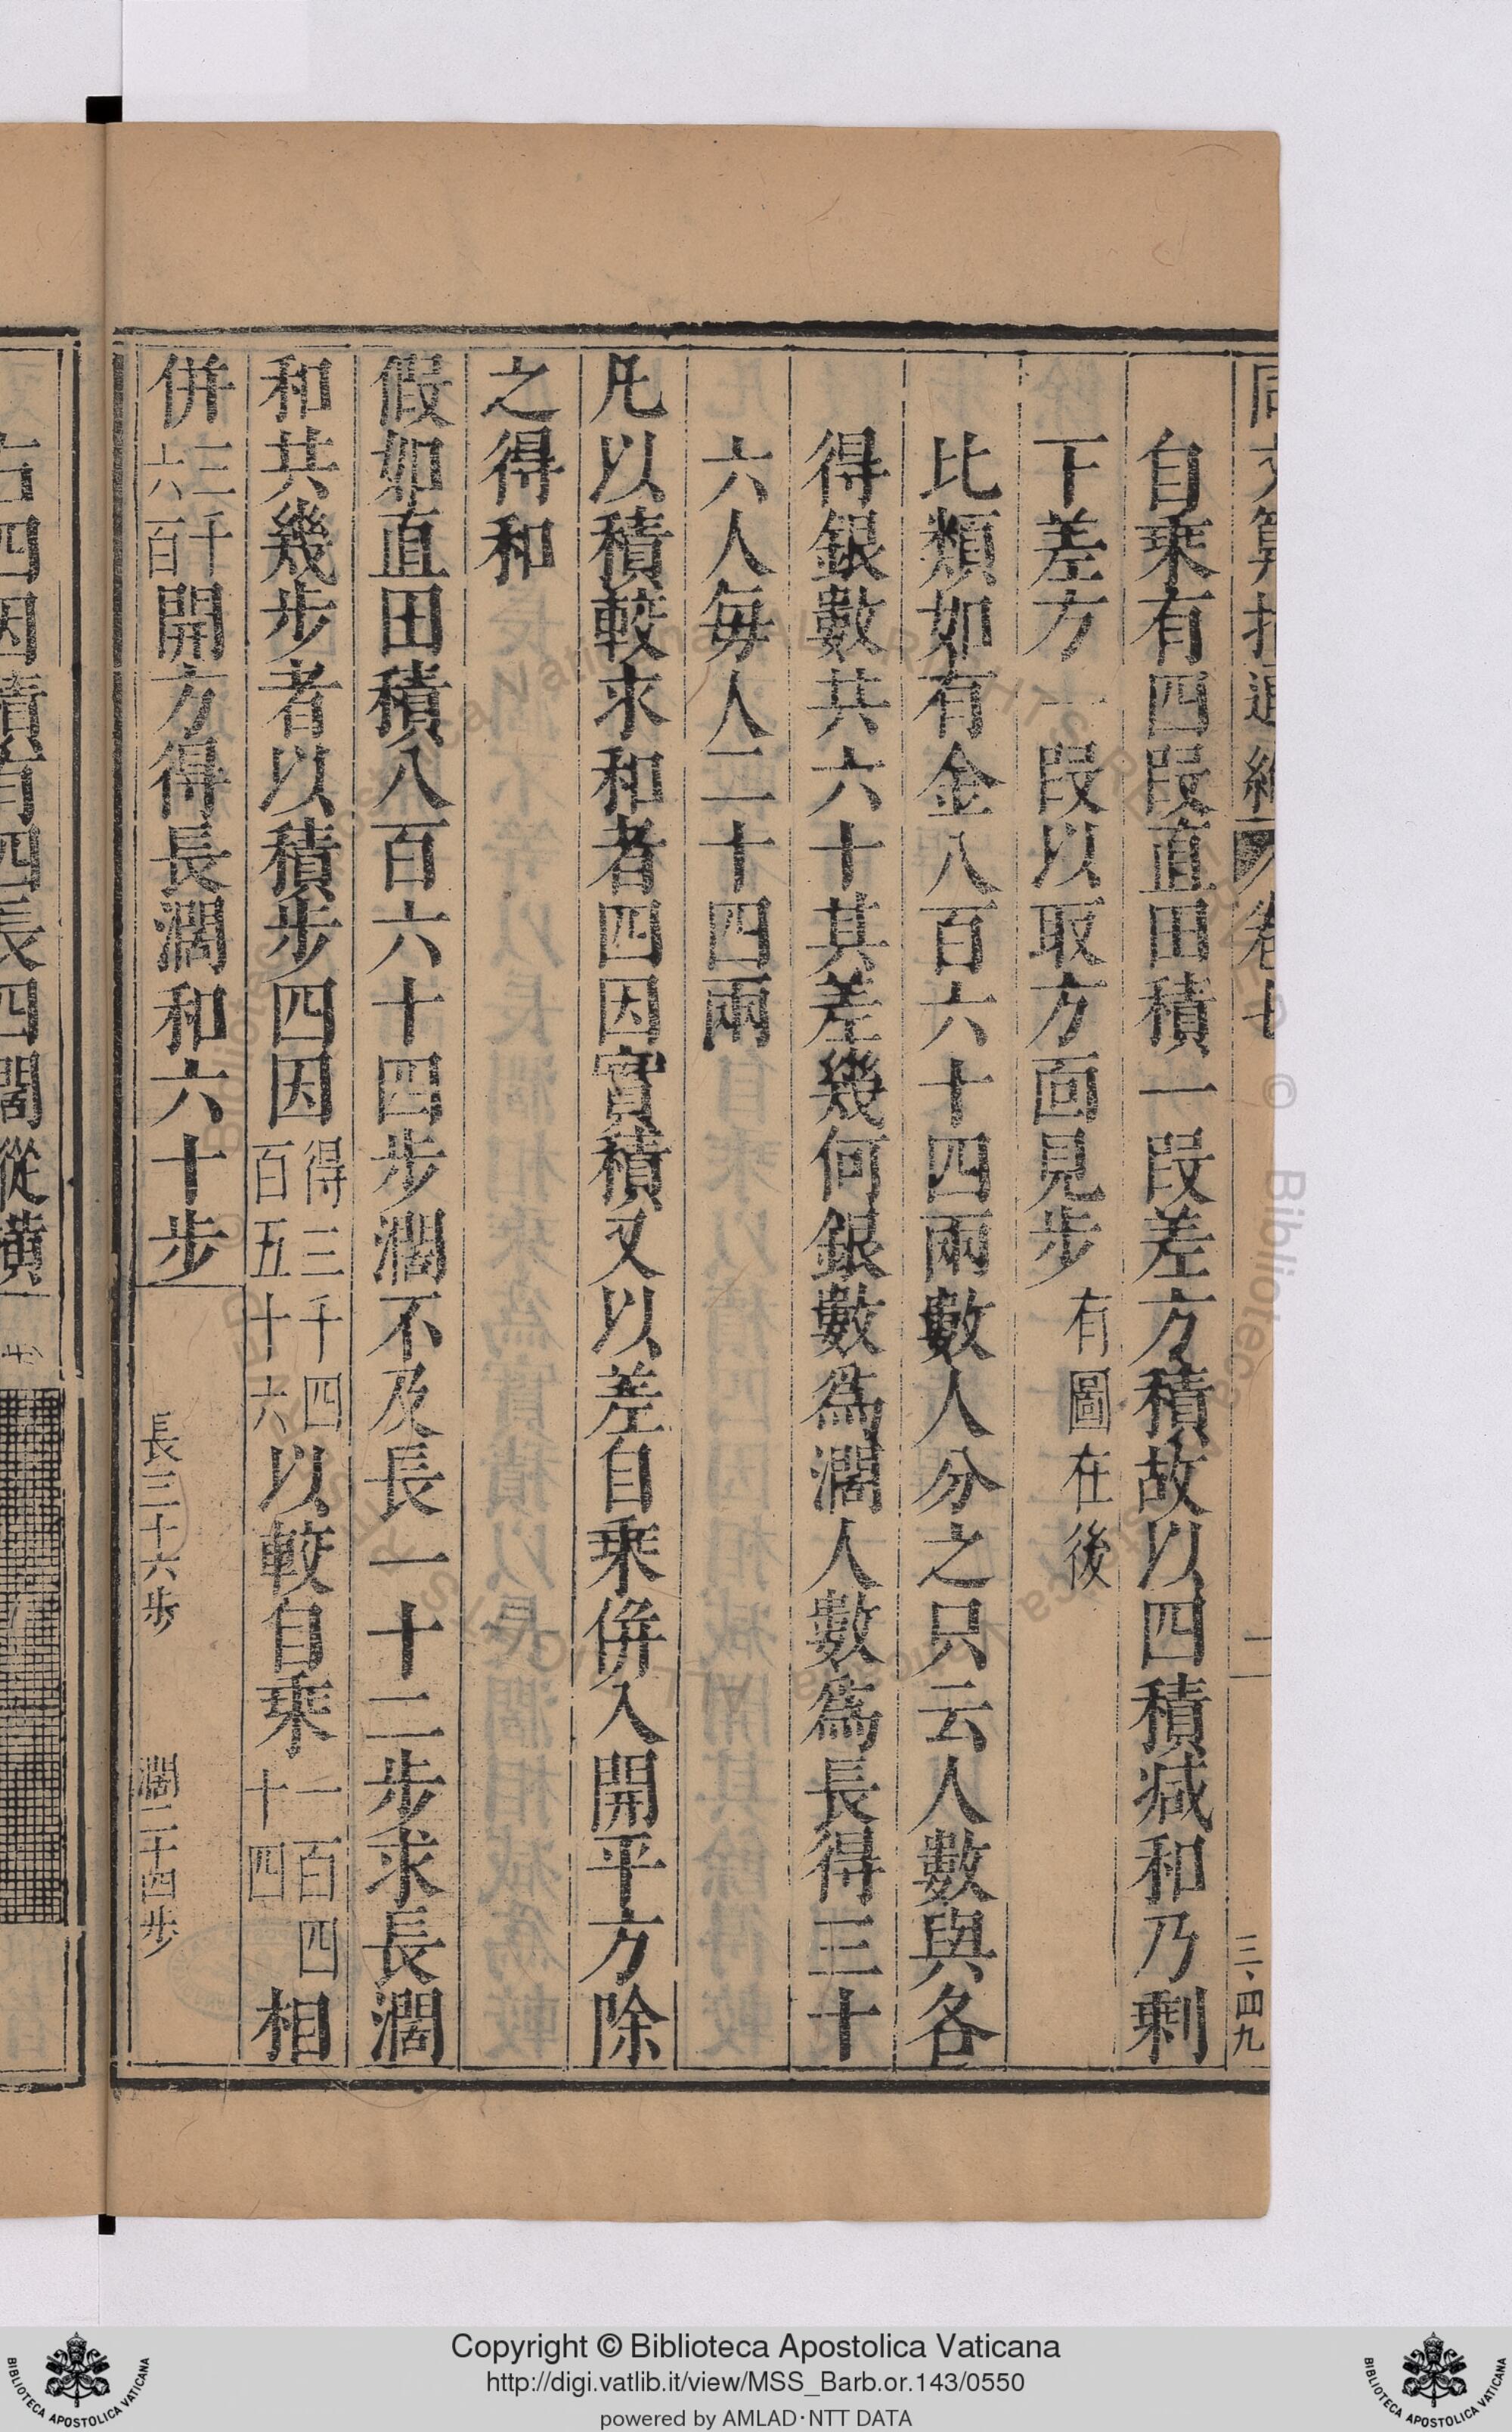 自乘有四段直田積一段差方積故以四積减和乃剩
下差方一段以取方面見步有圖在後
比類如有金八百六十四兩數人分之只云人數與各
得銀數共六十其差幾何銀數爲濶人數爲長得三十
六人每人二十四兩
凡以積較求和者四因實積又以差自乘併入開平方除
之得和
假如直田積八百六十四步濶不及長一十二步求長濶
和共幾步者以積步四因得三千四百五十六以較自乘一百四十四相
併三千六百開方得長濶和六十步
長三十六步 濶二十四步
右四因積有四長四闊從橫
三·四九
Copyright © Biblioteca Apostolica Vaticana
http://digi.vatlib.it/view/MSS_Barb.or.143/0550
powered by AMLAD·NTT DATA
BIBLIOTECA APOSTOLICA VATICANA
BIBLIOTECA APOSTOLICA VATICANA